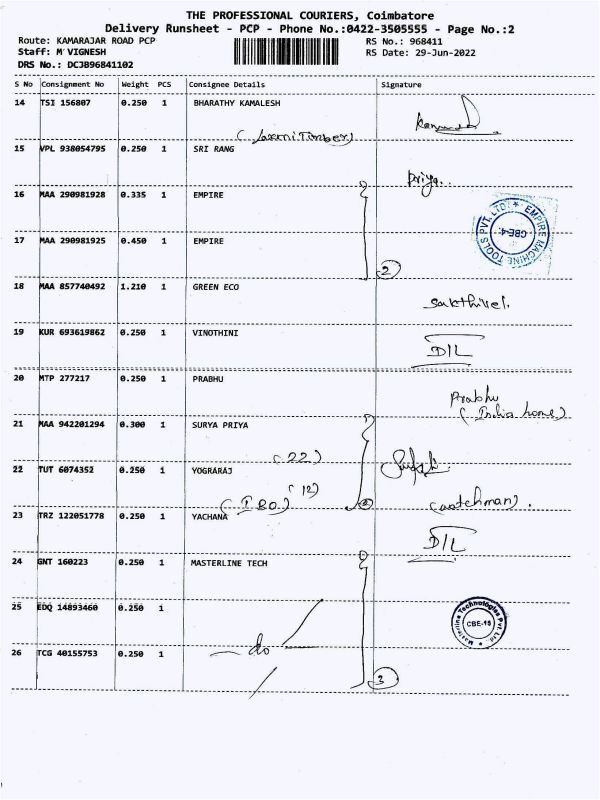 THE PROFESSIONAL COURIERS, Coimbatore
Delivery Runsheet - PCP - Phone No.:0422-3505555 - Page No.:2
Route: KAMARAJAR ROAD PCP RS No.: 968411
Staff: M VIGNESH RS Date: 29-Jun-2022
DRS No.: DCJB96841102
S No Consignment No Weight PCS Consignee Details Signature
14 TSI 156807 0.250 1 BHARATHY KAMALESH
(Laxmi Timber)
15 VPL 938054795 0.250 1 SRI RANG
Priya..
16 MAA 290981928 0.335 1 EMPIRE
EMPIRE MACHINE TOOLS PVT. LTD. * CBE-4.
17 MAA 290981925 0.450 1 EMPIRE
2
18 MAA 857740492 1.210 1 GREEN ECO
Sakthivel.
19 KUR 693619862 0.250 1 VINOTHINI
D/L
20 MTP 277217 0.250 1 PRABHU
Prabhu
(India home)
21 MAA 942201294 0.300 1 SURYA PRIYA
(22)
22 TUT 6074352 0.250 1 YOGRARAJ
(12)
(watchman).
23 TRZ 122051778 0.250 1 YACHANA
D/L
24 GNT 160223 0.250 1 MASTERLINE TECH
25 EDQ 14893460 0.250 1
Masterline Technologies Pvt Ltd * CBE-15
26 TCG 40155753 0.250 1 do
3